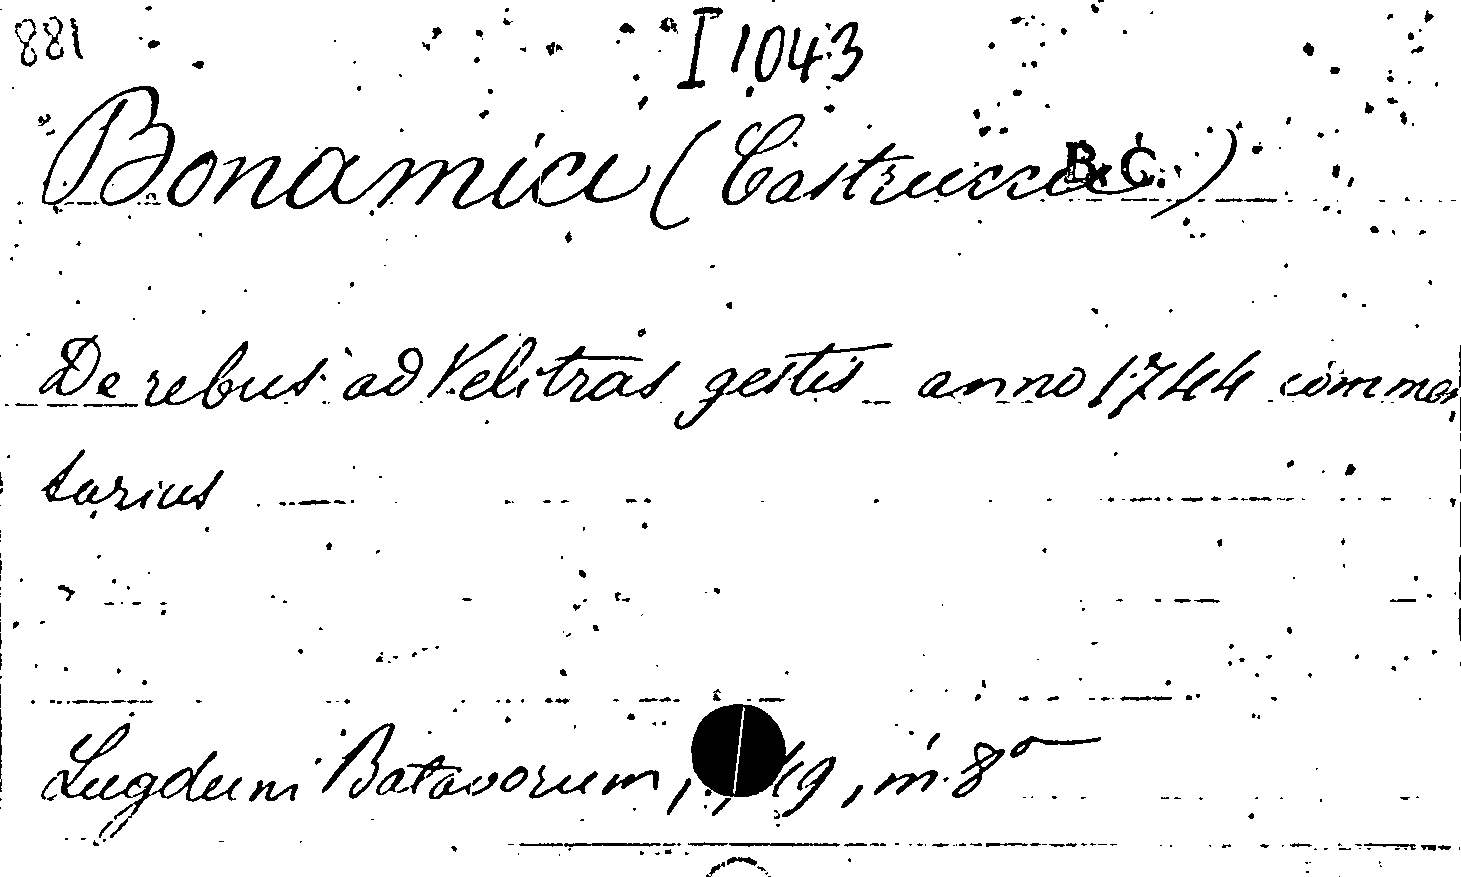 881
I 1043
Bonamici (Castruccio) B.C.
De rebus ad Velitras gestis anno 1744 commen
tarius
Lugduni Batavorum, 49, in 8°